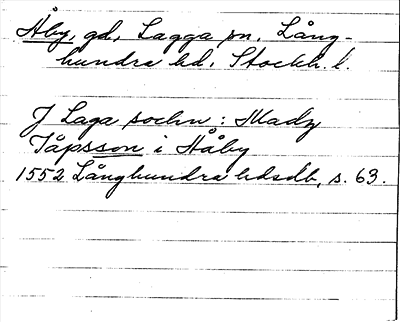 Åby, gd, Lagga sn. Lång-
hundra hd. Stockh. l.
J Laga sochn: Madz
Jåpsson i Håby
1552 Långhundra hdsdb, s. 63.